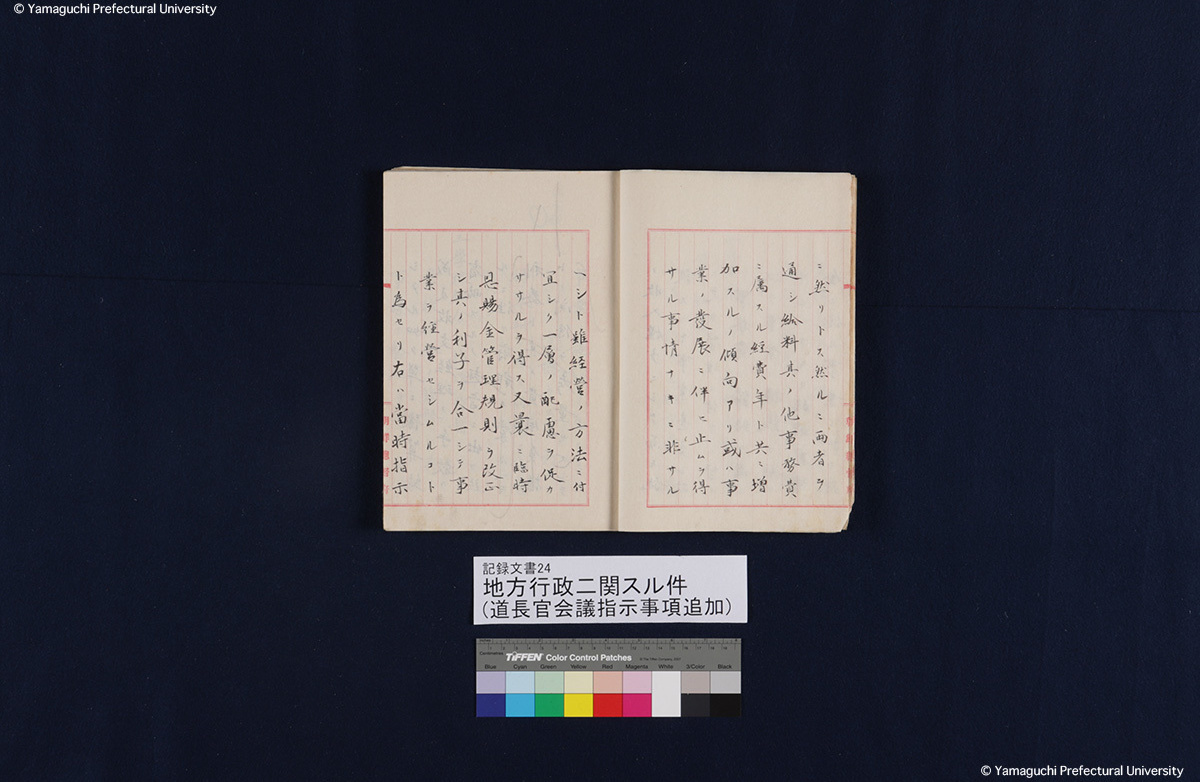 © Yamaguchi Prefectural University
ニ然リトス然ルニ両者ヲ
通シ給料其ノ他事務費
ニ属スル経費年ト共ニ増
加スルノ傾向アリ或ハ事
業ノ發展ニ伴ヒ止ムヲ得
サル事情ナキニ非サル
ヘシト雖経營ノ方法ニ付
宜シク一層ノ配慮ヲ促サ
サルヲ得ス又曩ニ臨時
恩賜金管理規則ヲ改正
シ其ノ利子ヲ合一シテ事
業ヲ経營セシムルコト
ト為セリ右ハ當時指示
記録文書24
地方行政二関スル件
(道長官会議指示事項追加)
Centimetres
TIFFEN Color Control Patches
Blue Cyan Green Yellow Red Magenta White 3/Color Black
© Yamaguchi Prefectural University